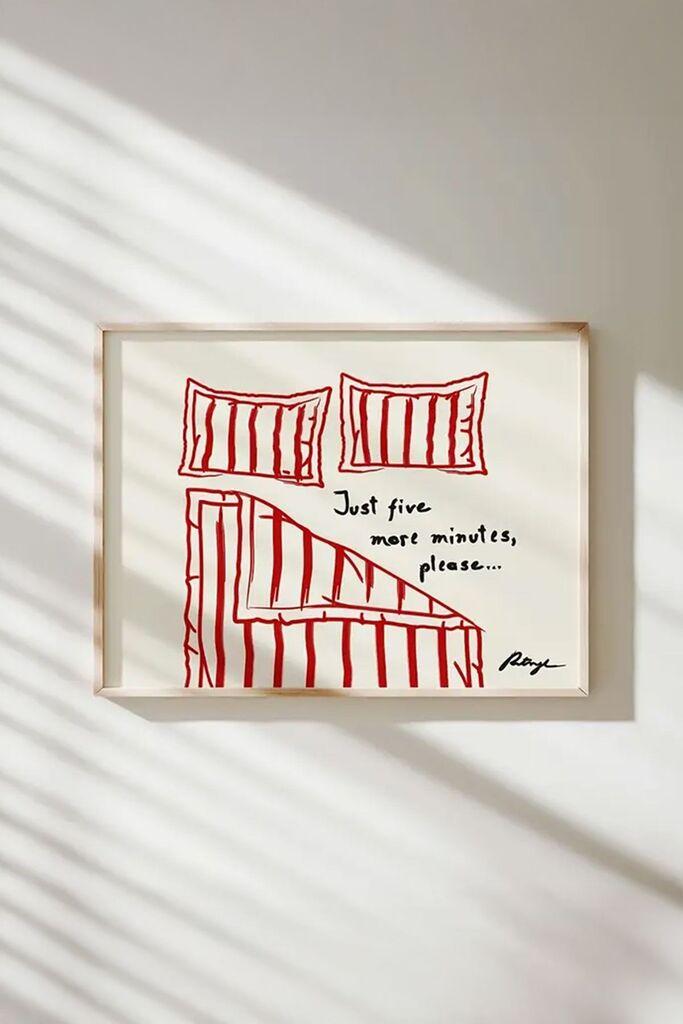 Just five
more minutes,
please...